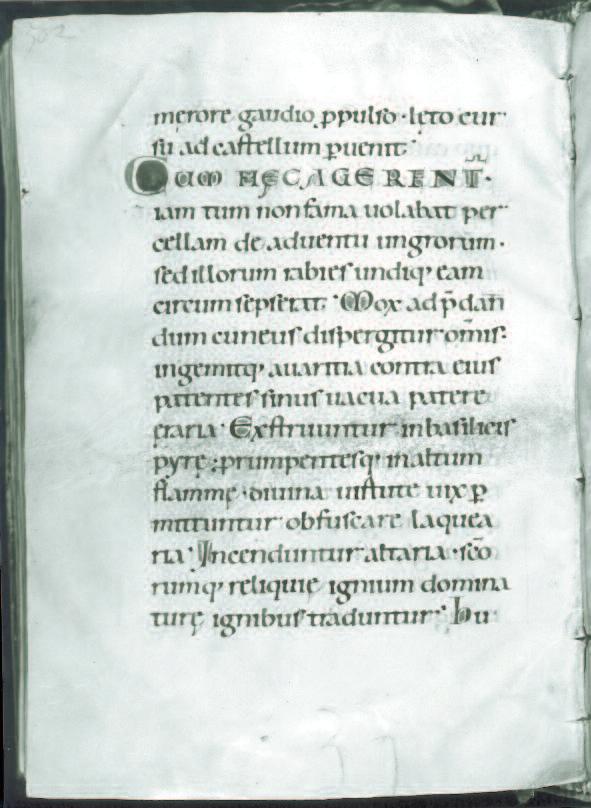 302
męrore gaudio ꝓpulso · lęto cur
su ad castellum ꝑuenit.
CUM HĘC AGERENT̃.
iam tum non fama uolabat per
cellam de aduentu ungrorum.
sed illorum rabies undiq; eam
circumsepserat. Mox ad p̄dan̄
dum cuneus dispergitur om̄is.
ingemitq; auaritia contra eius
patentes sinus uacua patere
ęraria. Exstruuntur in basilicis
pyrę; prumpentesq; in altum
flammę · diuina uirtute uix ꝑ
mittuntur obfuscare laquea
ria. Incenduntur altaria · sc̄o
rumq; reliquię ignium domina
turę ignibus traduntur. Hu